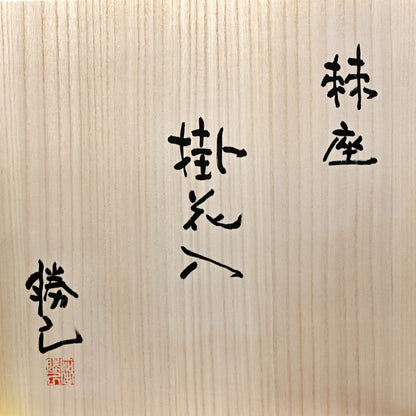 棘座
掛花入
勝己